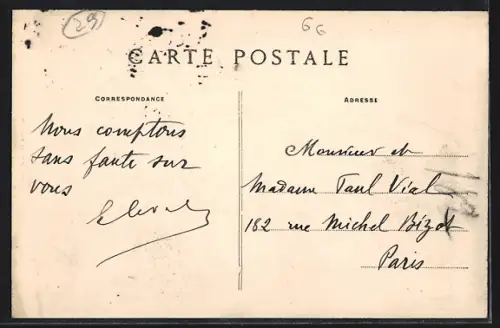 29
66
CARTE POSTALE
CORRESPONDANCE
ADRESSE
Nous comptons
sans faute sur
vous
Monsieur et
Madame Paul Vial
182 rue Michel Bizot
Paris